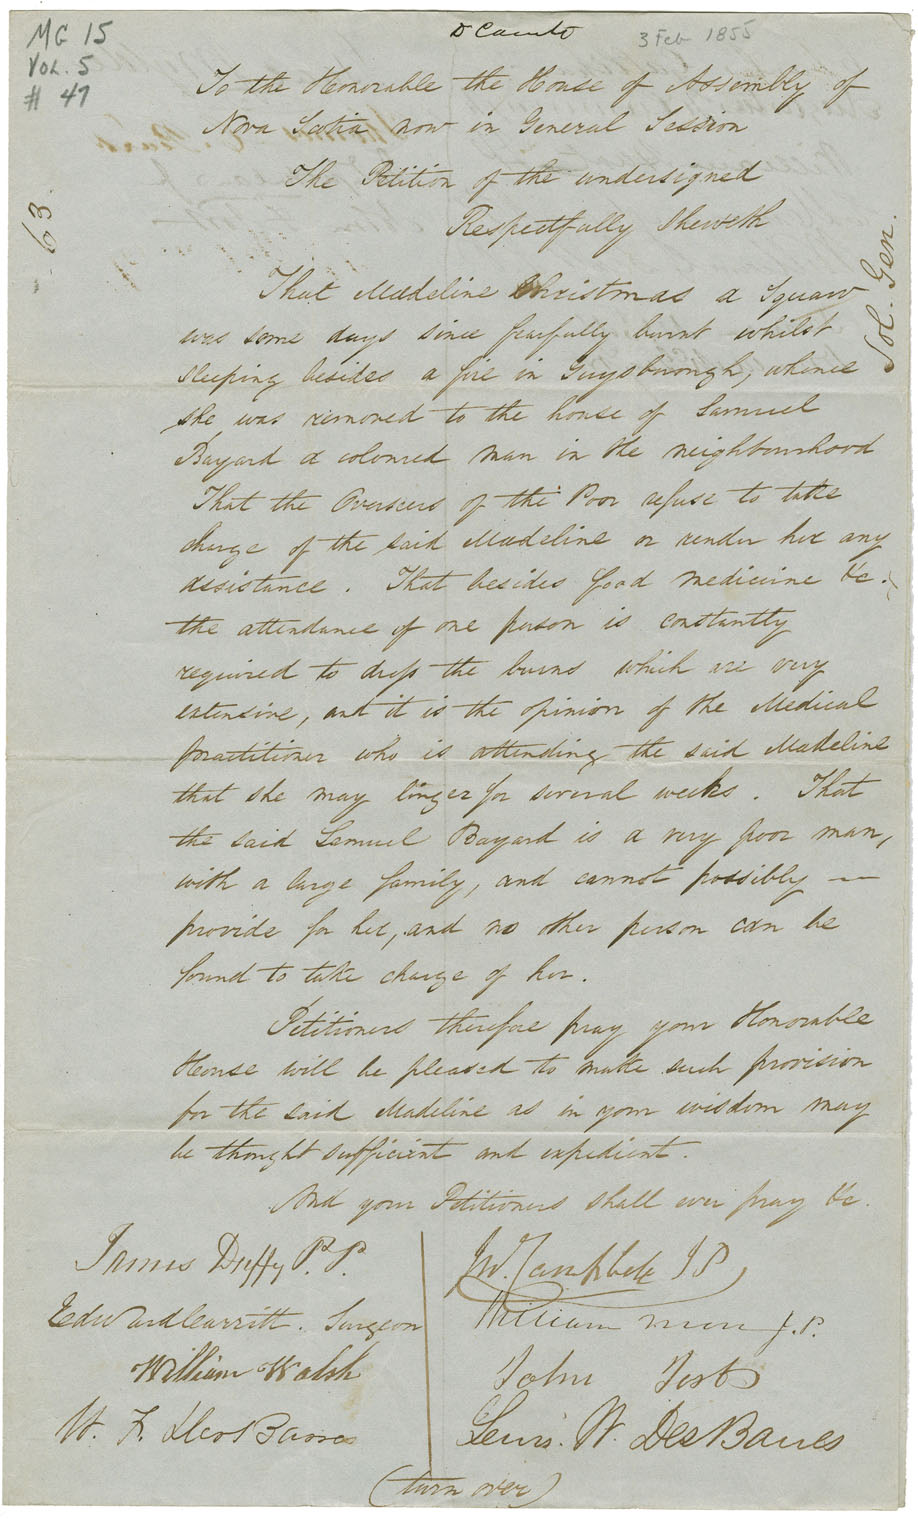 MG 15
Vol. 5
# 47
3 Feb 1855
63
Sol. Gen.
To the Honorable the House of Assembly of
Nova Scotia now in General Session
The Petition of the undersigned
Respectfully Sheweth
That Madeline Christmas a Squaw
was some days since fearfully burnt whilst
sleeping besides a fire in Guysborough, whence
she was removed to the house of Samuel
Bayard a coloured man in the neighbourhood
That the Overseers of the Poor refuse to take
charge of the said Madeline or render her any
assistance. That besides food medicine &c.
the attendance of one person is constantly
required to dress the burns which are very
extensive, and it is the opinion of the Medical
practitioner who is attending the said Madeline
that she may linger for several weeks. That
the said Samuel Bayard is a very poor man,
with a large family, and cannot possibly —
provide for her, and no other person can be
found to take charge of her.
Petitioners therefore pray your Honorable
House will be pleased to make such provision
for the said Madeline as in your wisdom may
be thought sufficient and expedient.
And your Petitioners shall ever pray &c.
James Duffy P.P.
Edward Carritt. Surgeon
William Walsh
W. F. DesBarres
Jno. Campbell JP
William J.P.
John
Lewis. W. DesBarres
(turn over)